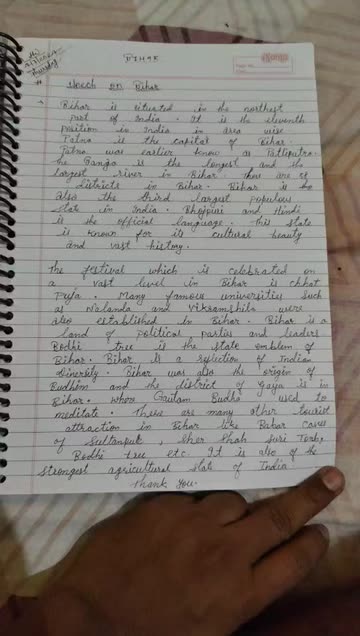 BIHAR
Speech on Bihar
Bihar is situated in the northest
part of India. It is the eleventh
position in India in area wise
Patna is the capital of Bihar.
Patna was earlier know as Patliputra.
the Ganga is the longest and the
largest river in Bihar. there are
districts in Bihar. Bihar is
also the third largest populous
state in India. Bhojpuri and Hindi
is the official language. This state
is known for its cultural beauty
and vast history.
the festival which is celebrated on
a vast level in Bihar is chhat
Puja. Many famous universities such
as Nalanda and Vikramshila were
also established in Bihar. Bihar is a
land of political parties and leaders
Bodhi tree is the state emblem of
Bihar. Bihar is a reflection of Indian
diversity. Bihar was also the origin of
Budhism and the district of Gaya is in
Bihar. where Gautam Budha used to
meditate. There are many other tourist
attraction in Bihar like Barbar caves
of Sultanpur, Sher Shah Suri Tomb,
Bodhi tree etc. It is also of the
strongest agricultural state of India
Thank You.